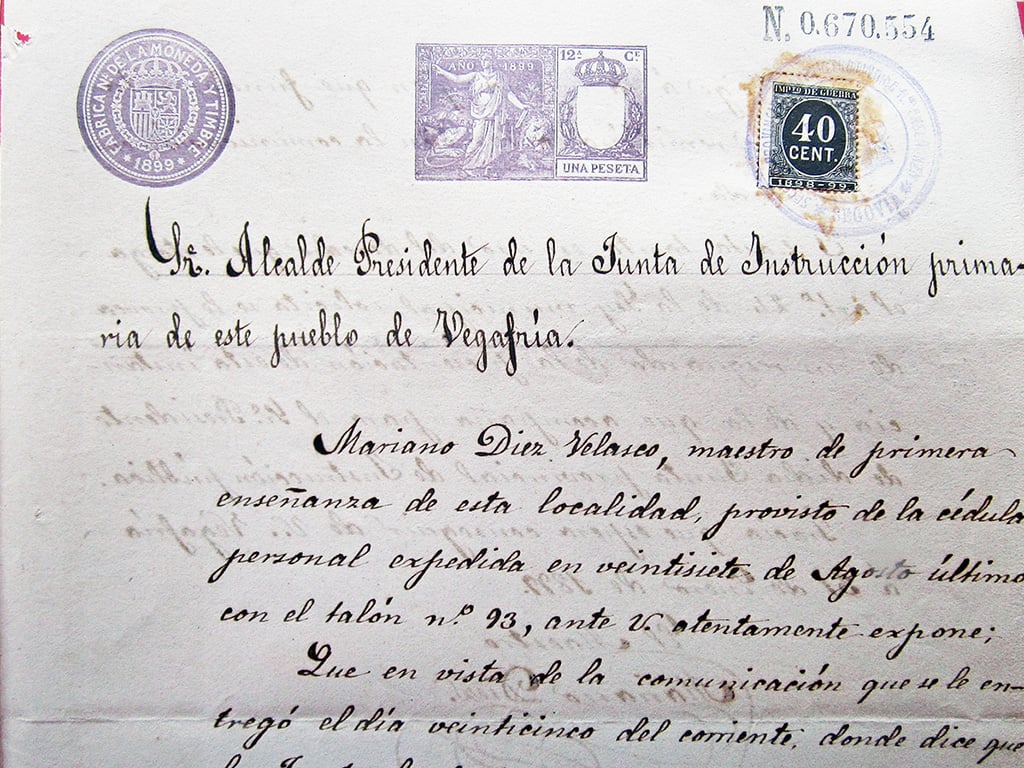 N. 0.670.554
FABRICA NL DE LA MONEDA Y TIMBRE
* 1899 *
AÑO 1899
12ª Cᴱ
UNA PESETA
IMPTO DE GUERRA
40
CENT.
1898-99
SEGOVIA
Sr. Alcalde Presidente de la Junta de Instrucción prima-
ria de este pueblo de Vegafría.
Mariano Diez Velasco, maestro de primera
enseñanza de esta localidad, provisto de la cédula
personal expedida en veintisiete de Agosto último
con el talón n.º 93, ante V. atentamente expone;
Que en vista de la comunicación que se le en-
tregó el día veinticinco del corriente, donde dice que
la Junta